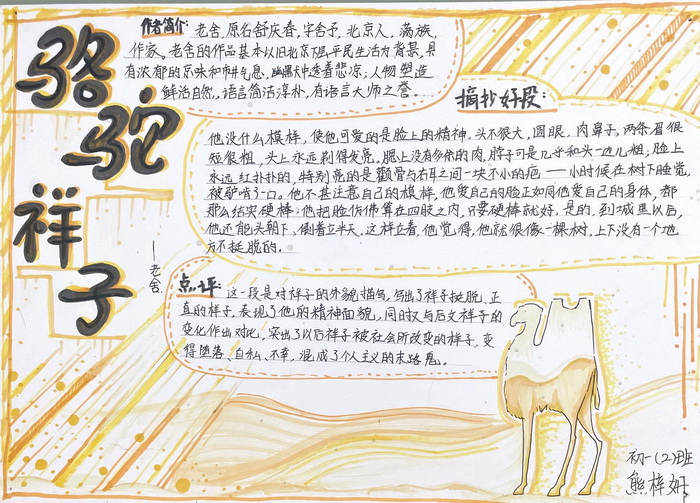 骆驼
祥子
——老舍
作者简介：老舍，原名舒庆春，字舍予，北京人，满族，
作家。老舍的作品基本以旧北京下层平民生活为背景，具
有浓郁的京味和市井气息，幽默中透着悲凉；人物塑造
鲜活自然，语言简洁淳朴，有语言大师之誉。
摘抄好段：
他没什么模样，使他可爱的是脸上的精神。头不很大，圆眼，肉鼻子，两条眉很
短很粗，头上永远剃得发亮。腮上没有多余的肉，脖子可是几乎和头一边儿粗；脸上
永远红扑扑的，特别亮的是颧骨与右耳之间一块不小的疤——小时候在树下睡觉，
被驴啃了一口。他不甚注意自己的模样，他爱自己的脸正如同他爱自己的身体，都
那么结实硬棒；他把脸仿佛算在四肢之内，只要硬棒就好。是的，到城里以后，
他还能头朝下，倒着立半天。这样立着，他觉得，他就很像一棵树，上下没有一个地
方不挺脱的。
点评：这一段是对祥子的外貌描写，写出了祥子挺脱、正
直的样子，表现了他的精神面貌，同时又与后文祥子的
变化作出对比，突出了以后祥子被社会所改变的样子，变
得堕落、自私、不幸，混成了个人主义的末路鬼。
初一(2)班
熊梓妍